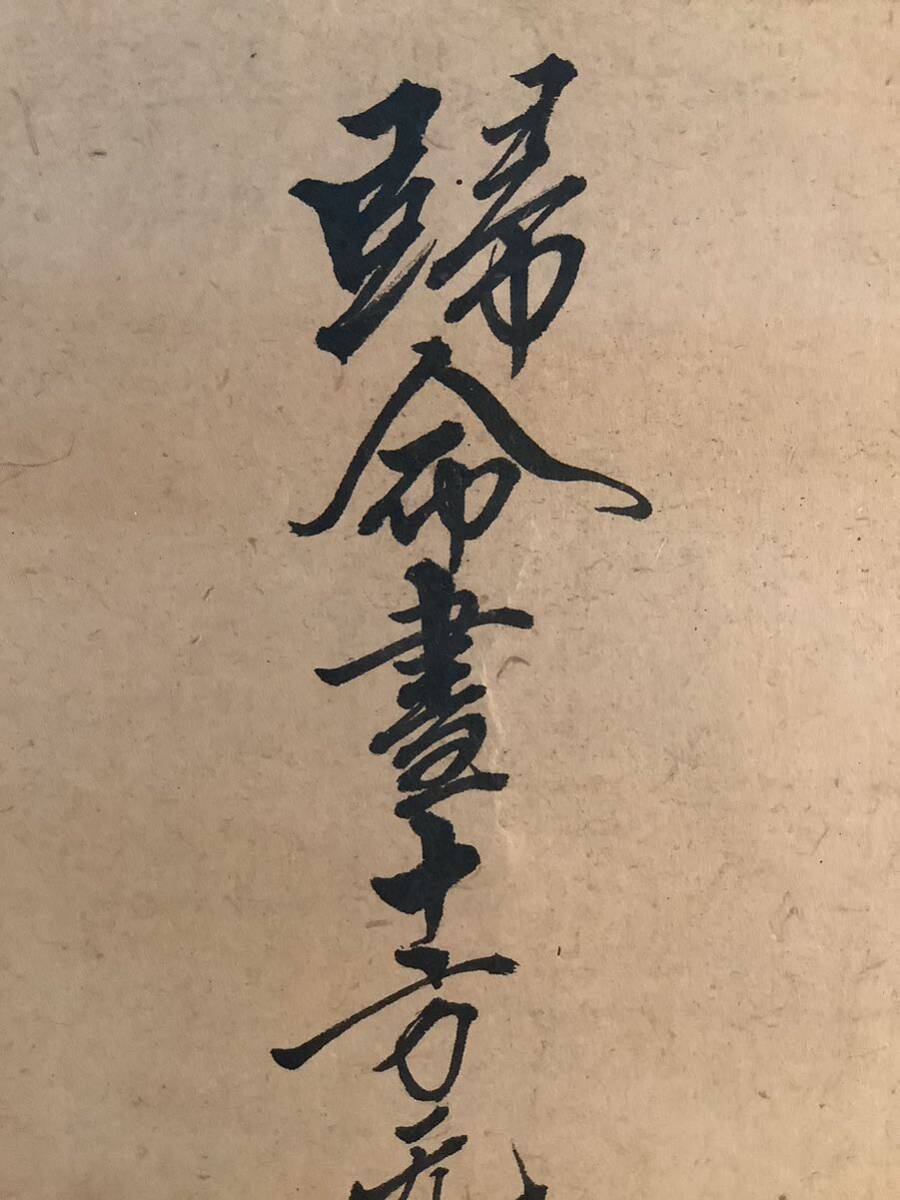 歸命盡十方无